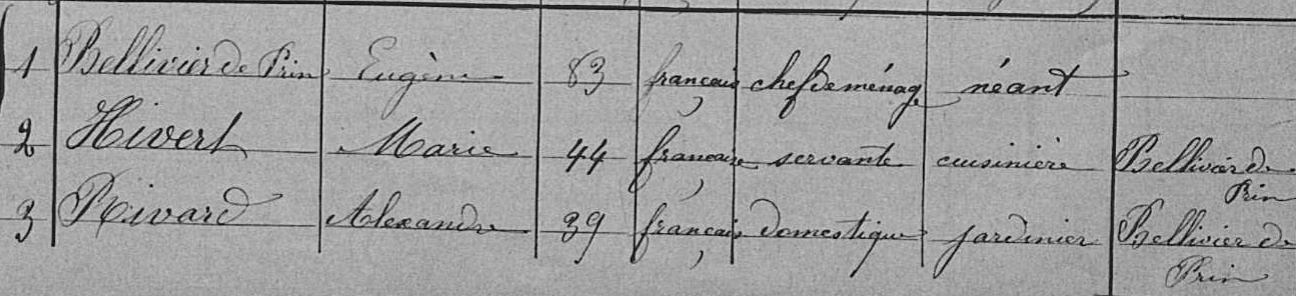 1 Bellivier de Prin Eugène 83 français chef de ménage néant
2 Hivert Marie 44 française servante cuisinière Bellivier de
Prin
3 Rivard Alexandre 39 français domestique jardinier Bellivier de
Prin